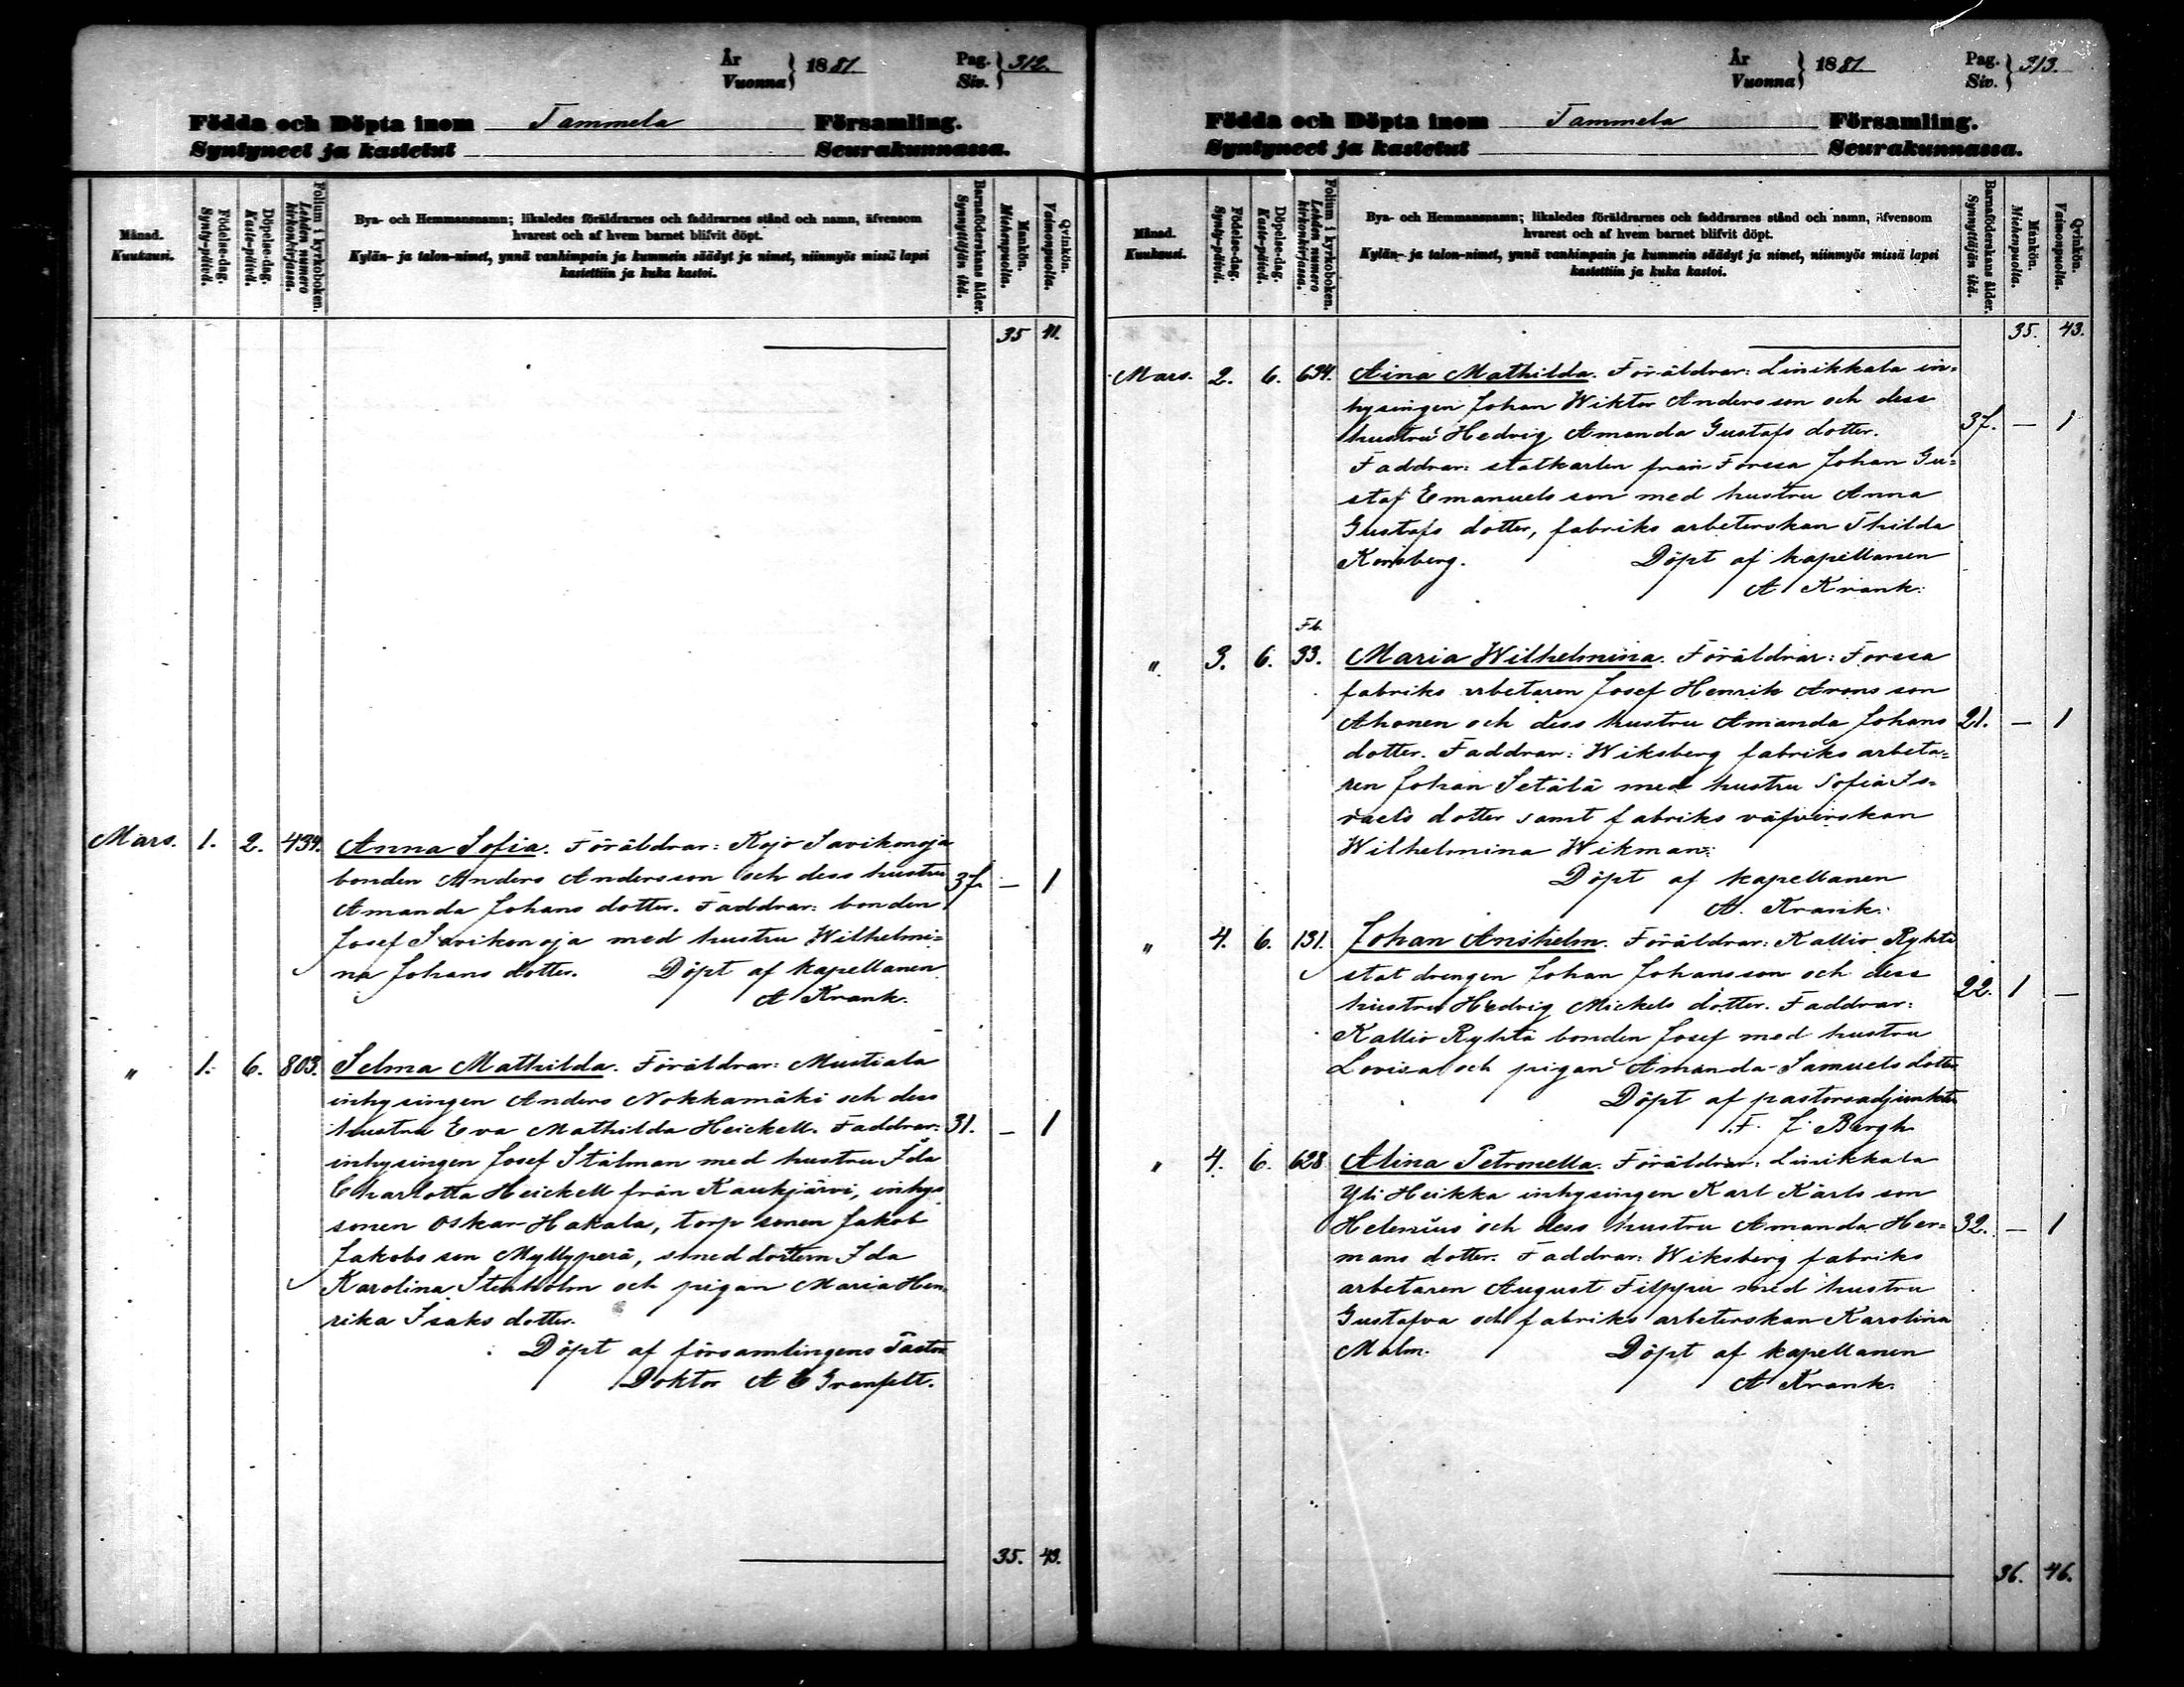 År
Vuonna } 1881 Pag.
Siv. } 312.
Födda och Döpta inom Tammela Församling.
Syntyneet ja kastetut Seurakunnassa.
Månad.
Kuukausi.
Födelse-dag.
Synty-päivä.
Döpelse-dag.
Kaste-päivä.
Folium i kyrkoboken.
Lehden numero
kirkonkirjassa.
Bya- och Hemmansnamn; likaledes föräldrarnes och faddrarnes stånd och namn, äfvensom
hvarest och af hvem barnet blifvit döpt.
Kylän- ja talon-nimet, ynnä vanhimpain ja kummein säädyt ja nimet, niinmyös missä lapsi
kastettiin ja kuka kastoi.
Barnaföderskans ålder.
Synnyttäjän ikä.
Mankön.
Miehenpuolta.
Qvinkön.
Vaimonpuolta.
35 41.
Mars. 1. 2. 434. Anna Sofia. Föräldrar: Kojo Savikonoja
bonden Anders Andersson och dess hustru 37. — 1
Amanda Johans dotter. Faddrar: bonden
Josef Savikonoja med hustru Wilhelmi=
na Johans dotter. Döpt af kapellanen
A Krank.
" 1. 6. 803. Selma Mathilda. Föräldrar: Mustiala
inhysingen Anders Nokkamäki och dess
hustru Eva Mathilda Heickell. Faddrar: 31. — 1
inhysingen Josef Stålman med hustru Ida
Charlotta Heickell från Kaukjärvi, inhys
sonen Oskar Hakala, torp sonen Jakob
Jakobs son Myllyperä, smed dottern Ida
Karolina Stenholm och pigan Maria Hen
rika Isaks dotter.
Döpt af församlingens Pastor
Doktor A E Granfelt.
35. 43.
År
Vuonna } 1881 Pag.
Siv. } 313.
Födda och Döpta inom Tammela Församling.
Syntyneet ja kastetut Seurakunnassa.
Månad.
Kuukausi.
Födelse-dag.
Synty-päivä.
Döpelse-dag.
Kaste-päivä.
Folium i kyrkoboken.
Lehden numero
kirkonkirjassa.
Bya- och Hemmansnamn; likaledes föräldrarnes och faddrarnes stånd och namn, äfvensom
hvarest och af hvem barnet blifvit döpt.
Kylän- ja talon-nimet, ynnä vanhimpain ja kummein säädyt ja nimet, niinmyös missä lapsi
kastettiin ja kuka kastoi.
Barnaföderskans ålder.
Synnyttäjän ikä.
Mankön.
Miehenpuolta.
Qvinkön.
Vaimonpuolta.
35. 43.
Mars. 2. 6. 634. Aina Mathilda. Föräldrar: Linikkala in=
hysingen Johan Wiktor Andersson och dess
hustru Hedvig Amanda Gustafs dotter. 37. — 1
Faddrar: statkarlen från Forssa Johan Gu=
staf Emanuels son med hustru Anna
Gustafs dotter, fabriks arbeterskan Thilda
Konsberg. Döpt af kapellanen
A Krank.
Fb.
" 3. 6. 33. Maria Wilhelmina. Föräldrar: Forssa
fabriks arbetaren Josef Henrik Arons son
Ahonen och dess hustru Amanda Johans 21. — 1
dotter. Faddrar: Wiksberg fabriks arbeta=
ren Johan Setälä med hustru Sofia Is=
raels dotter samt fabriks väfverskan
Wilhelmina Wikman.
Döpt af kapellanen
A. Krank.
" 4. 6. 131. Johan Anshelm. Föräldrar: Kallio Ryhtä
stat drengen Johan Johansson och dess
hustru Hedvig Mickels dotter. Faddrar: 22. 1 —
Kallio Ryhtä bonden Josef med hustru
Lovisa och pigan Amanda Samuels dotter
Döpt af pastorsadjunkten
F. J. Bergh
" 4. 6. 628 Alina Petronella. Föräldrar: Linikkala
Yli Heikka inhysingen Karl Karls son
Helenius och dess hustru Amanda Her= 32. — 1
mans dotter. Faddrar: Wiksberg fabriks
arbetaren August Filppu med hustru
Gustafva och fabriks arbeterskan Karolina
Malm. Döpt af kapellanen
A Krank.
36. 46.